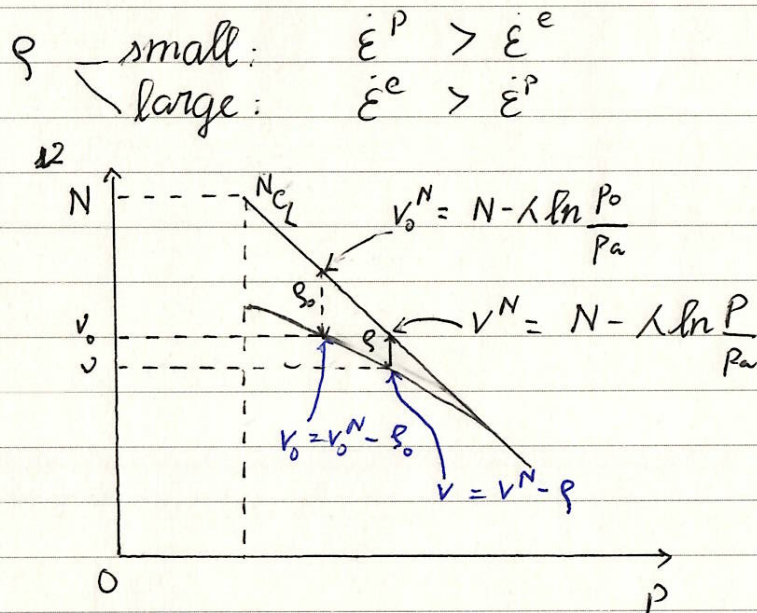 ρ small: ε̇ᵖ > ε̇ᵉ
large: ε̇ᵉ > ε̇ᵖ
N
NCL
v₀ᴺ = N - λ ln p₀/pₐ
ρ₀
v₀
ρ
vᴺ = N - λ ln p/pₐ
v
v₀ = v₀ᴺ - ρ₀
v = vᴺ - ρ
0
p